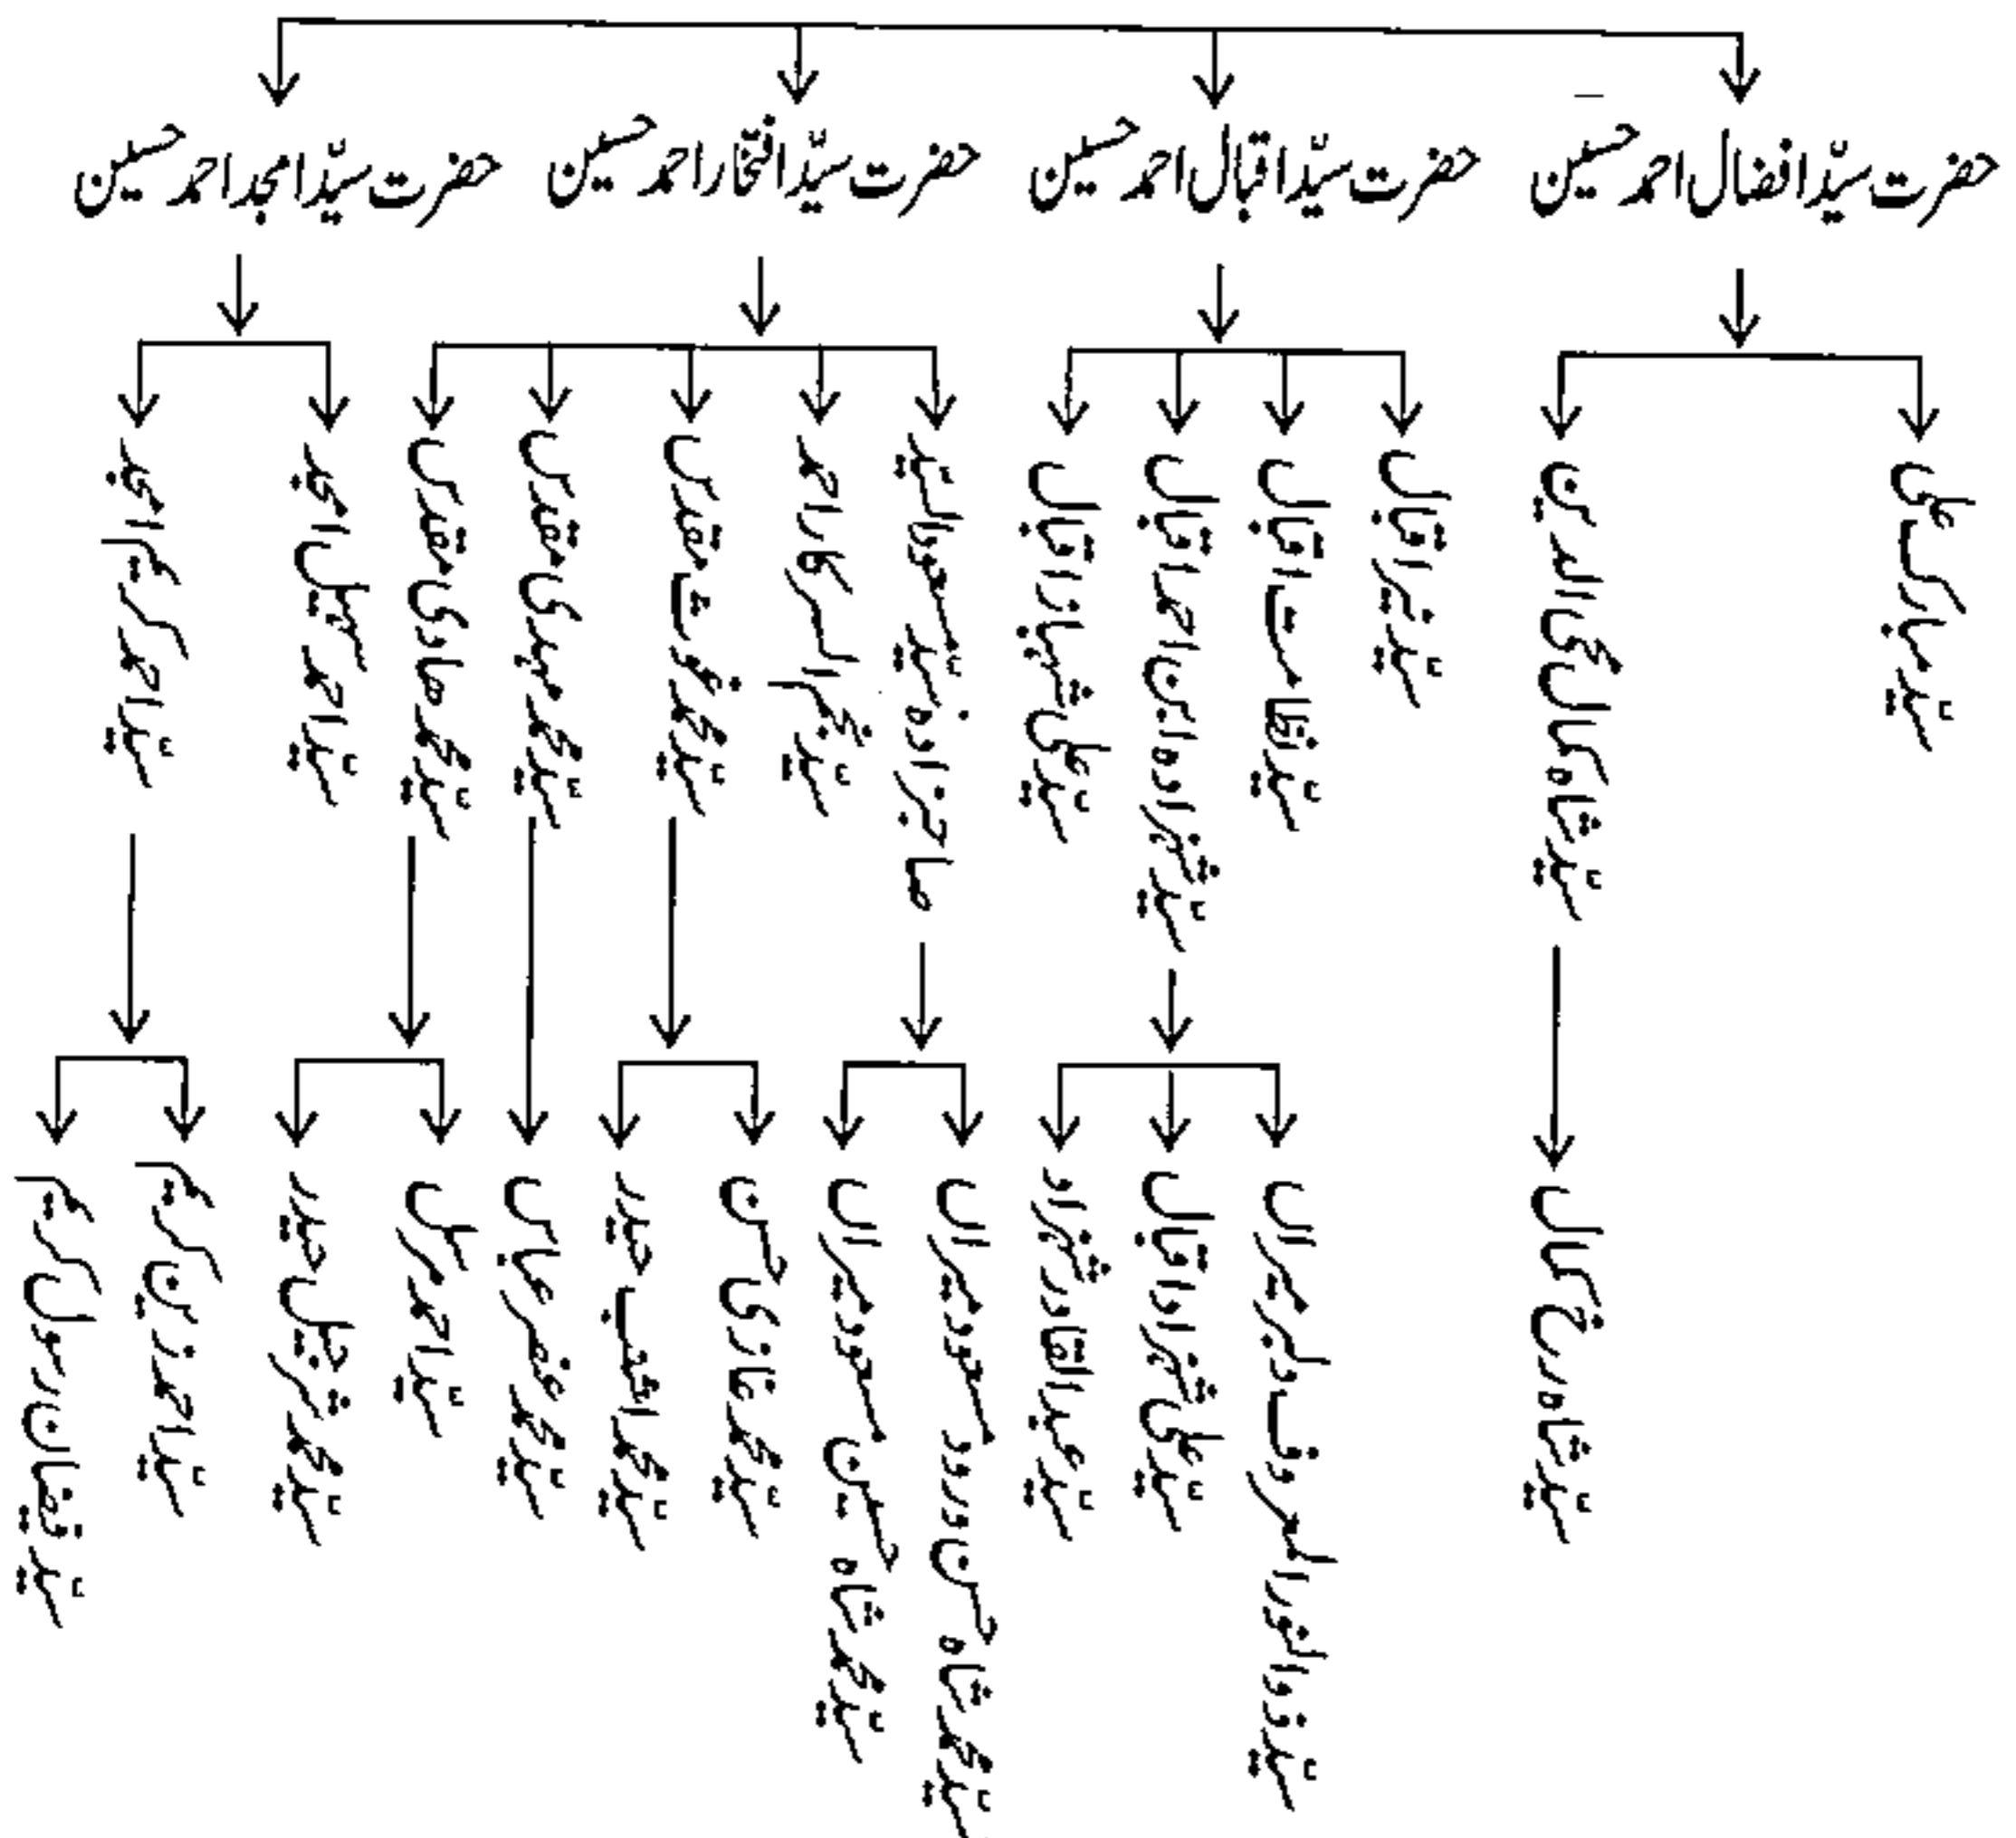 حضرت سیّد افضال احمد حسین
حضرت سیّد اقبال احمد حسین
حضرت سیّد افتخار احمد حسین
حضرت سیّد امجد احمد حسین
سیّد مبارک علی
سیّد شاہ کمال محی الدین
سیّد نیر اقبال
سیّد انتظا اقبال
سیّد شہزادہ امین احمد اقبال
سیّد علی شہباز اقبال
صاحبزادہ نذر سیّد مسعود السیّد
سیّد نجم السرکار احمد
سیّد محمد غوث مقدس
سیّد محمد مہدی مقدس
سیّد محمد ھادی مقدس
سیّد احمد مکتبل امجد
سیّد احمد کریم امجد
سیّد شاہ رخ کمال
سیّد ذوالنور المعروف دلبر میراں
سیّد علی شہزاد اقبال
سیّد عبد القادر شہزاد
سیّد محمد شاہ حسن ورود مسعود میراں
سیّد محمد شاہ حسین مسعود میراں
سیّد محمد غازی حسن
سیّد محمد حیدر
سیّد محمد خضر عباس
سیّد احمد مرسل
سیّد محمد شرجیل حیدر
سیّد احمد زین کریم
سیّد فیضان رسول کریم